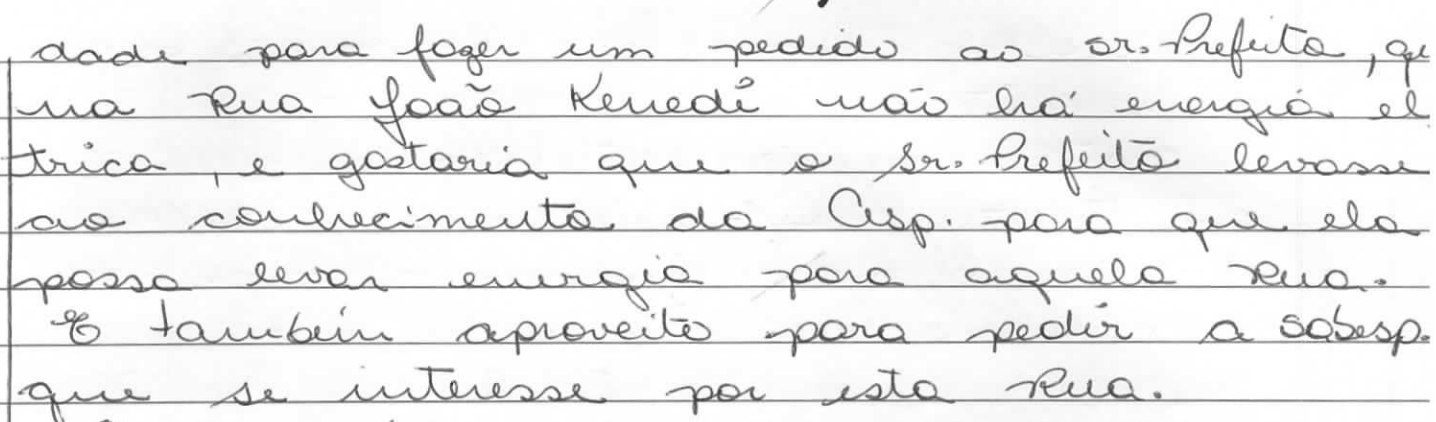 dade para fazer um pedido ao sr. Prefeito, que
na Rua João Kenedi não há energia el
trica, e gostaria que o Sr. Prefeito levasse
ao conhecimento da Cesp. para que ela
possa levar energia para aquela Rua.
E também aproveito para pedir a Sabesp.
que se interesse por esta Rua.